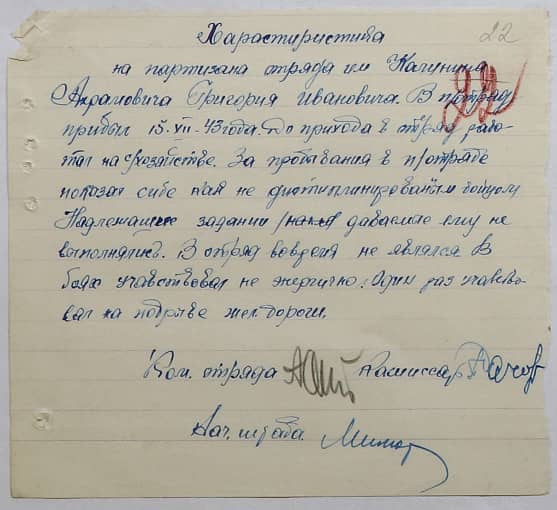 Харастиристика 22
на партизана отряда им Калинина
Ахрамовича Григория Ивановича. В п/отряд
прибыл 15. VII. 43 года. До прихода в отряд рабо-
тал на с/хозяйстве. За пробывания в п/отряде
показал себя как не дистиплинированым бойцом
Надлежащие задании даваемие ему не
выполнялись. В отряд вовремя не являлся В
боях учавствовал не энергично. Один раз учавство-
вал на подрыве жел. дороги.
Ком. отряда Комиссар
Нач. штаба.